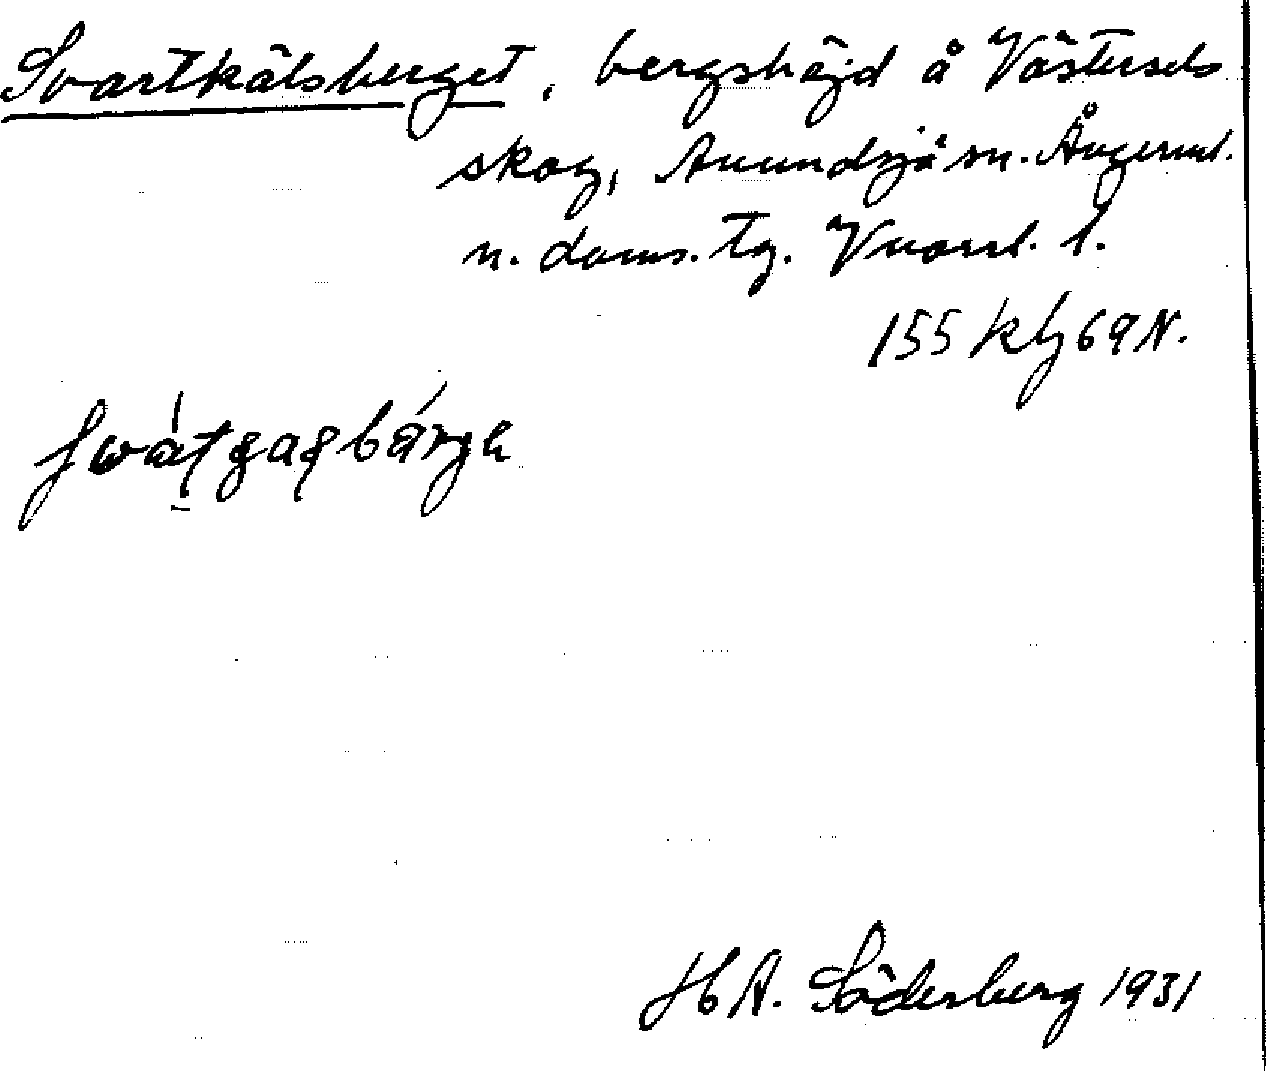 Svartkälsberget, bergshöjd å Västersels
skog, Anundsjö sn. Ångerml.
n. doms. tg. Vnorrl. l.
155 klj 69 N.
H A. Söderberg 1931